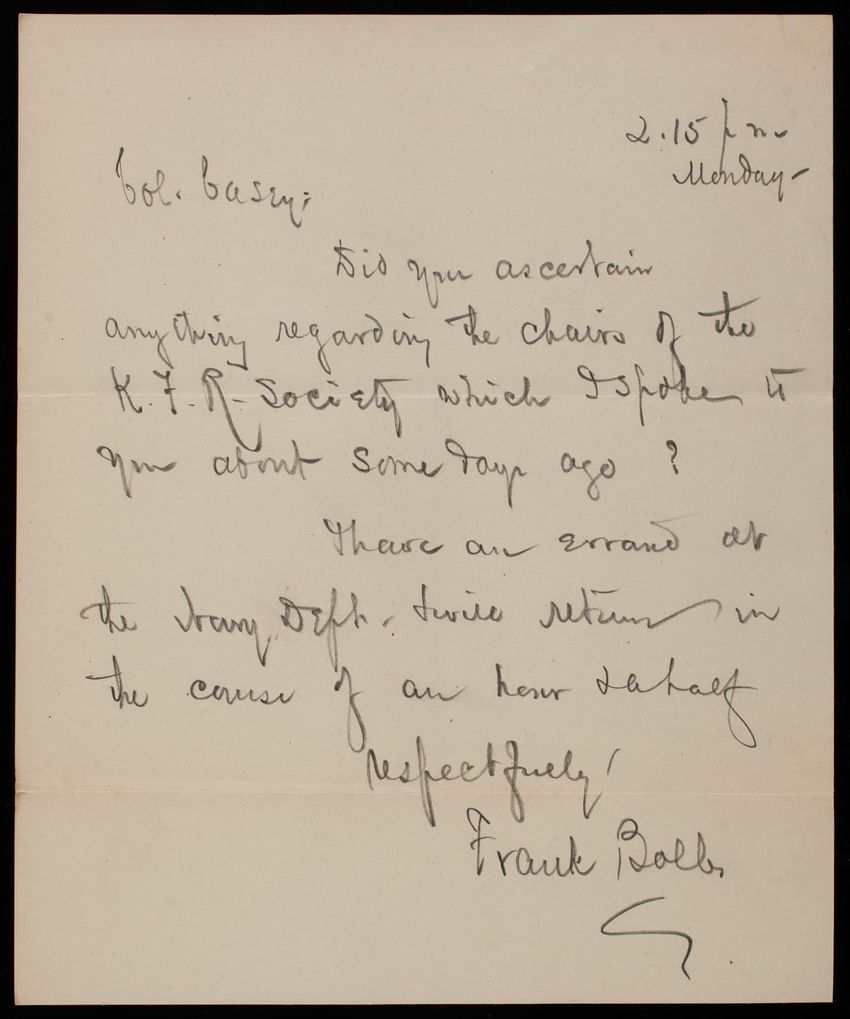 2.15 pm
Monday-
Col. Casey;
Did you ascertain
anything regarding the chairs of the
K. F. R. Society which I spoke to
you about some days ago ?
I have an errand at
the Navy Dept. & will return in
the course of an hour & a half
respectfully
Frank